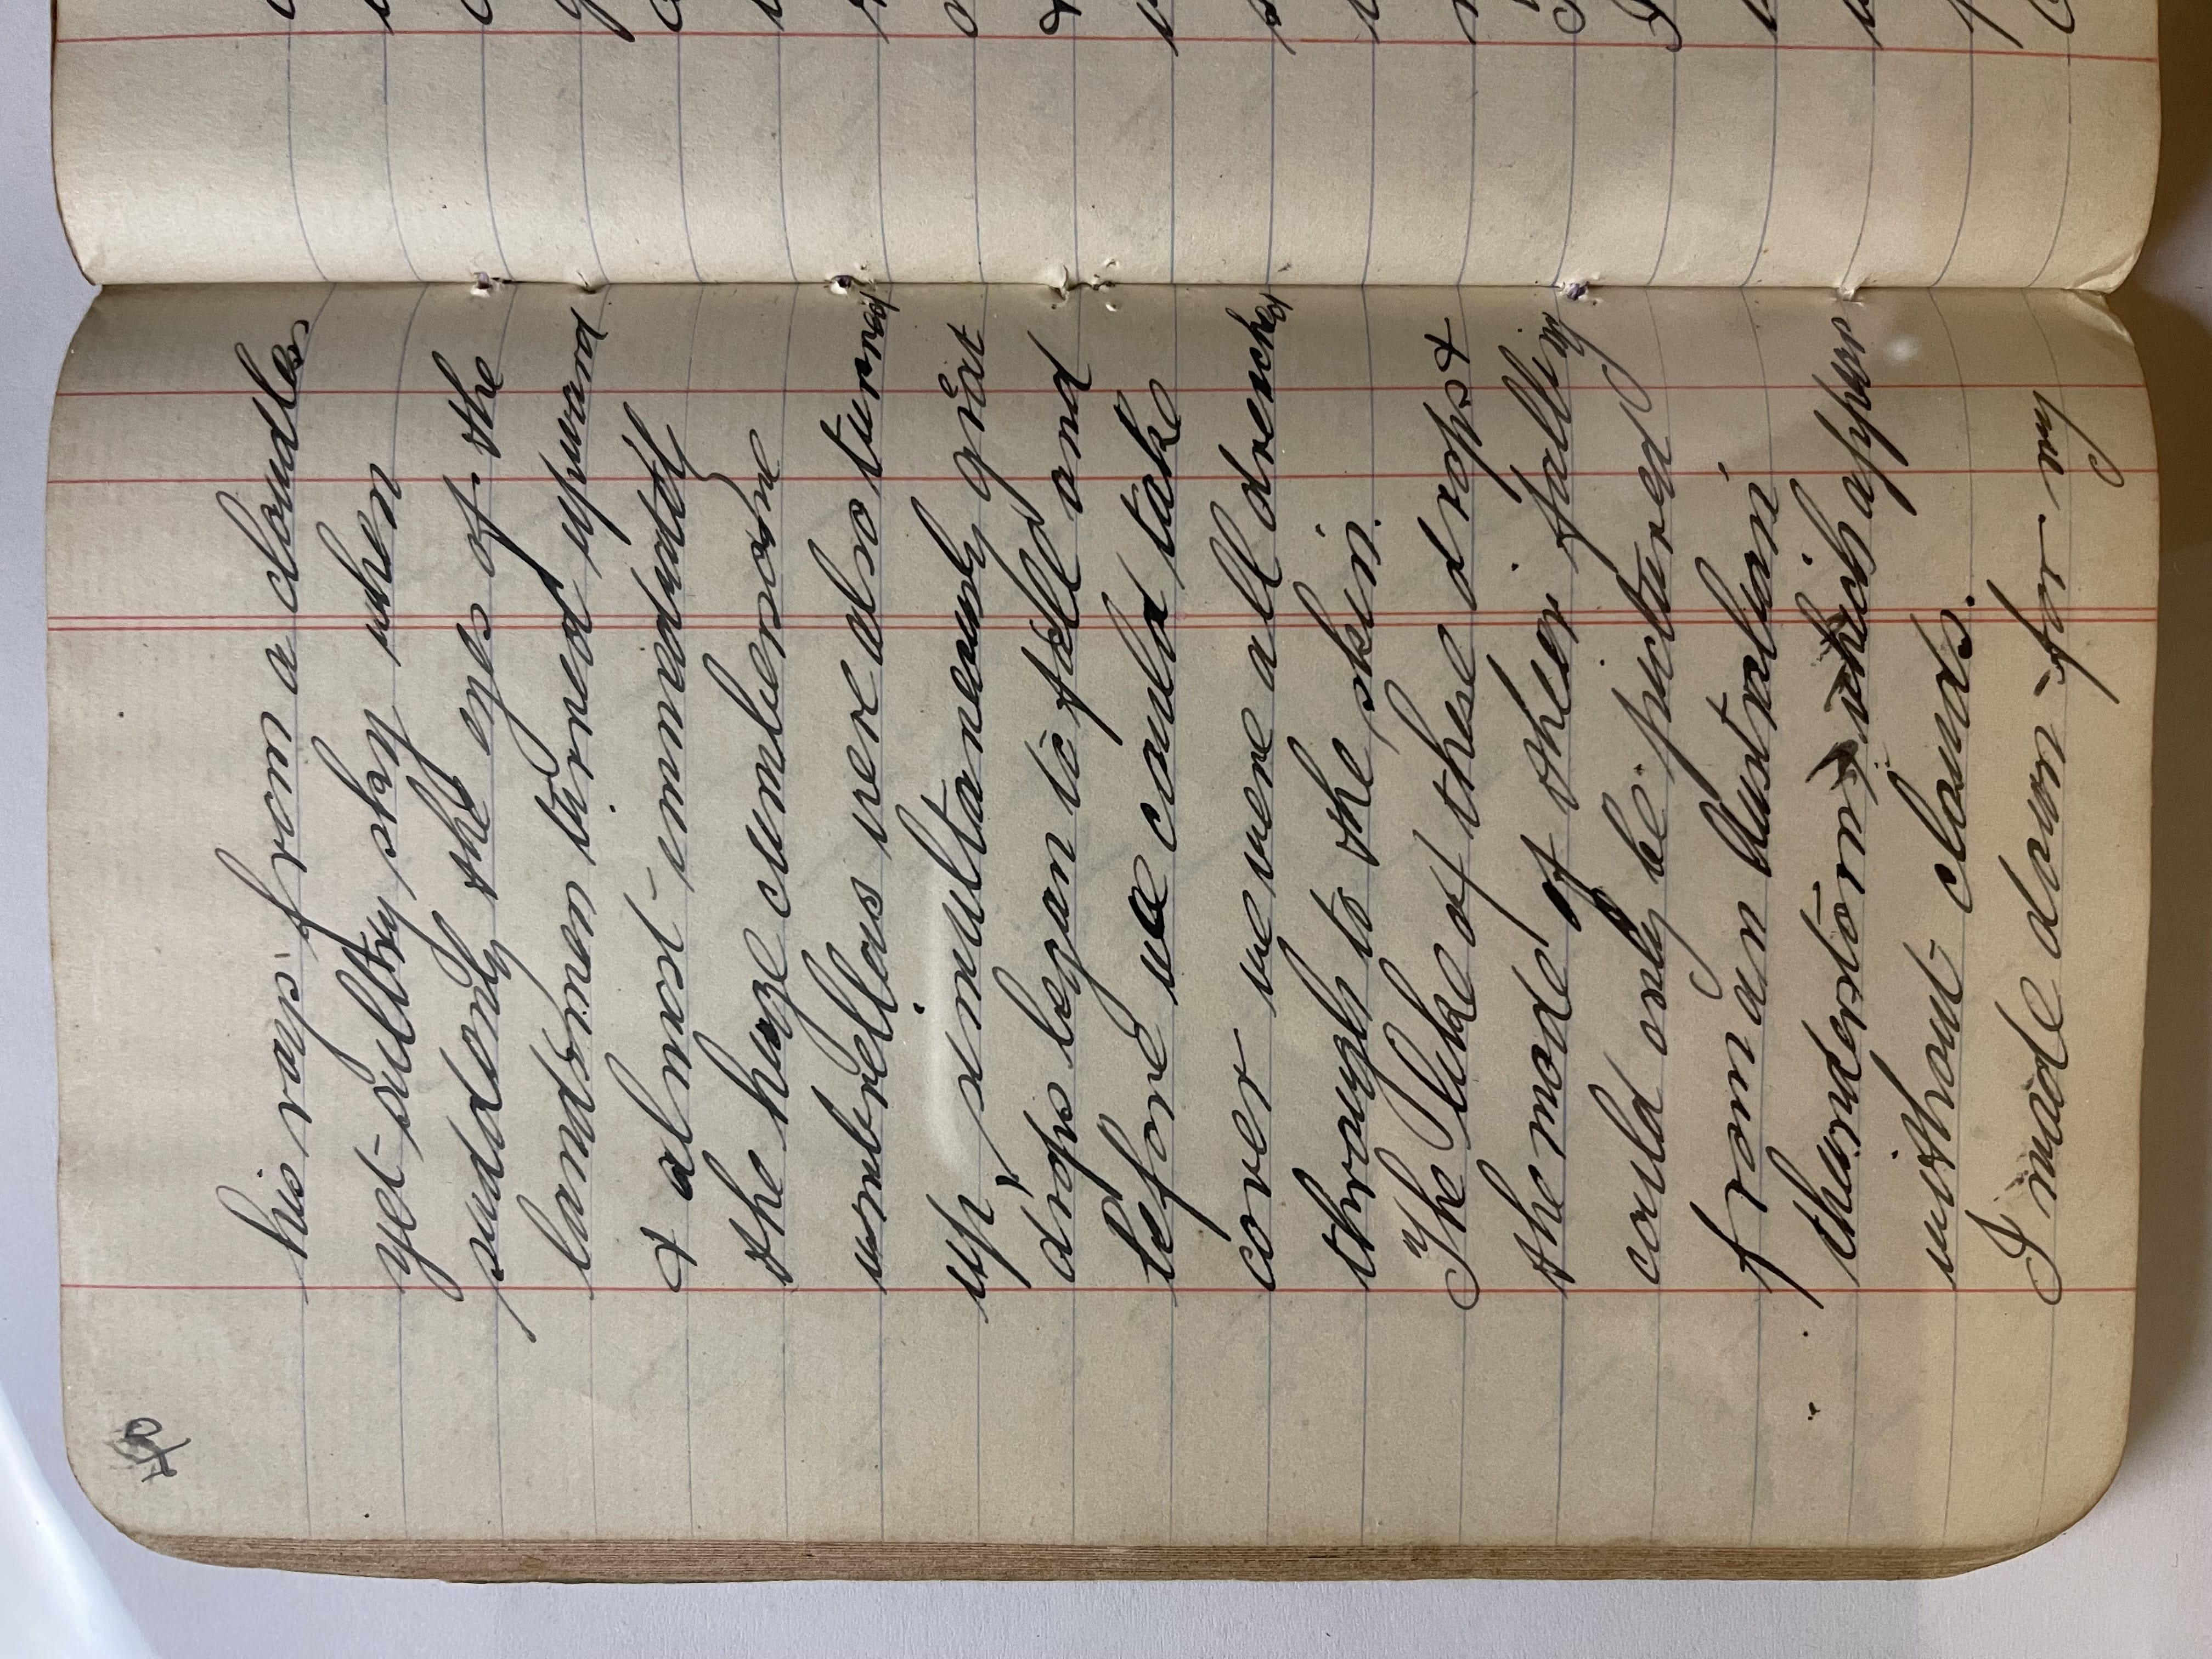 40
his rays from a cloudles
yet sultry sky when
suddenly the eyes of the
landsmen turned upward
& almost immediatdly
the huge cumbersome
umbrellas were also turned
up, simultaneously great
drops began to fall and
before we could take
cover we were all drenched
through to the skin.
The like of these drops &
the mode of their falling
could only be pictured
from an Australian
thunderstorm, which appear
without clouds.
I made down for my